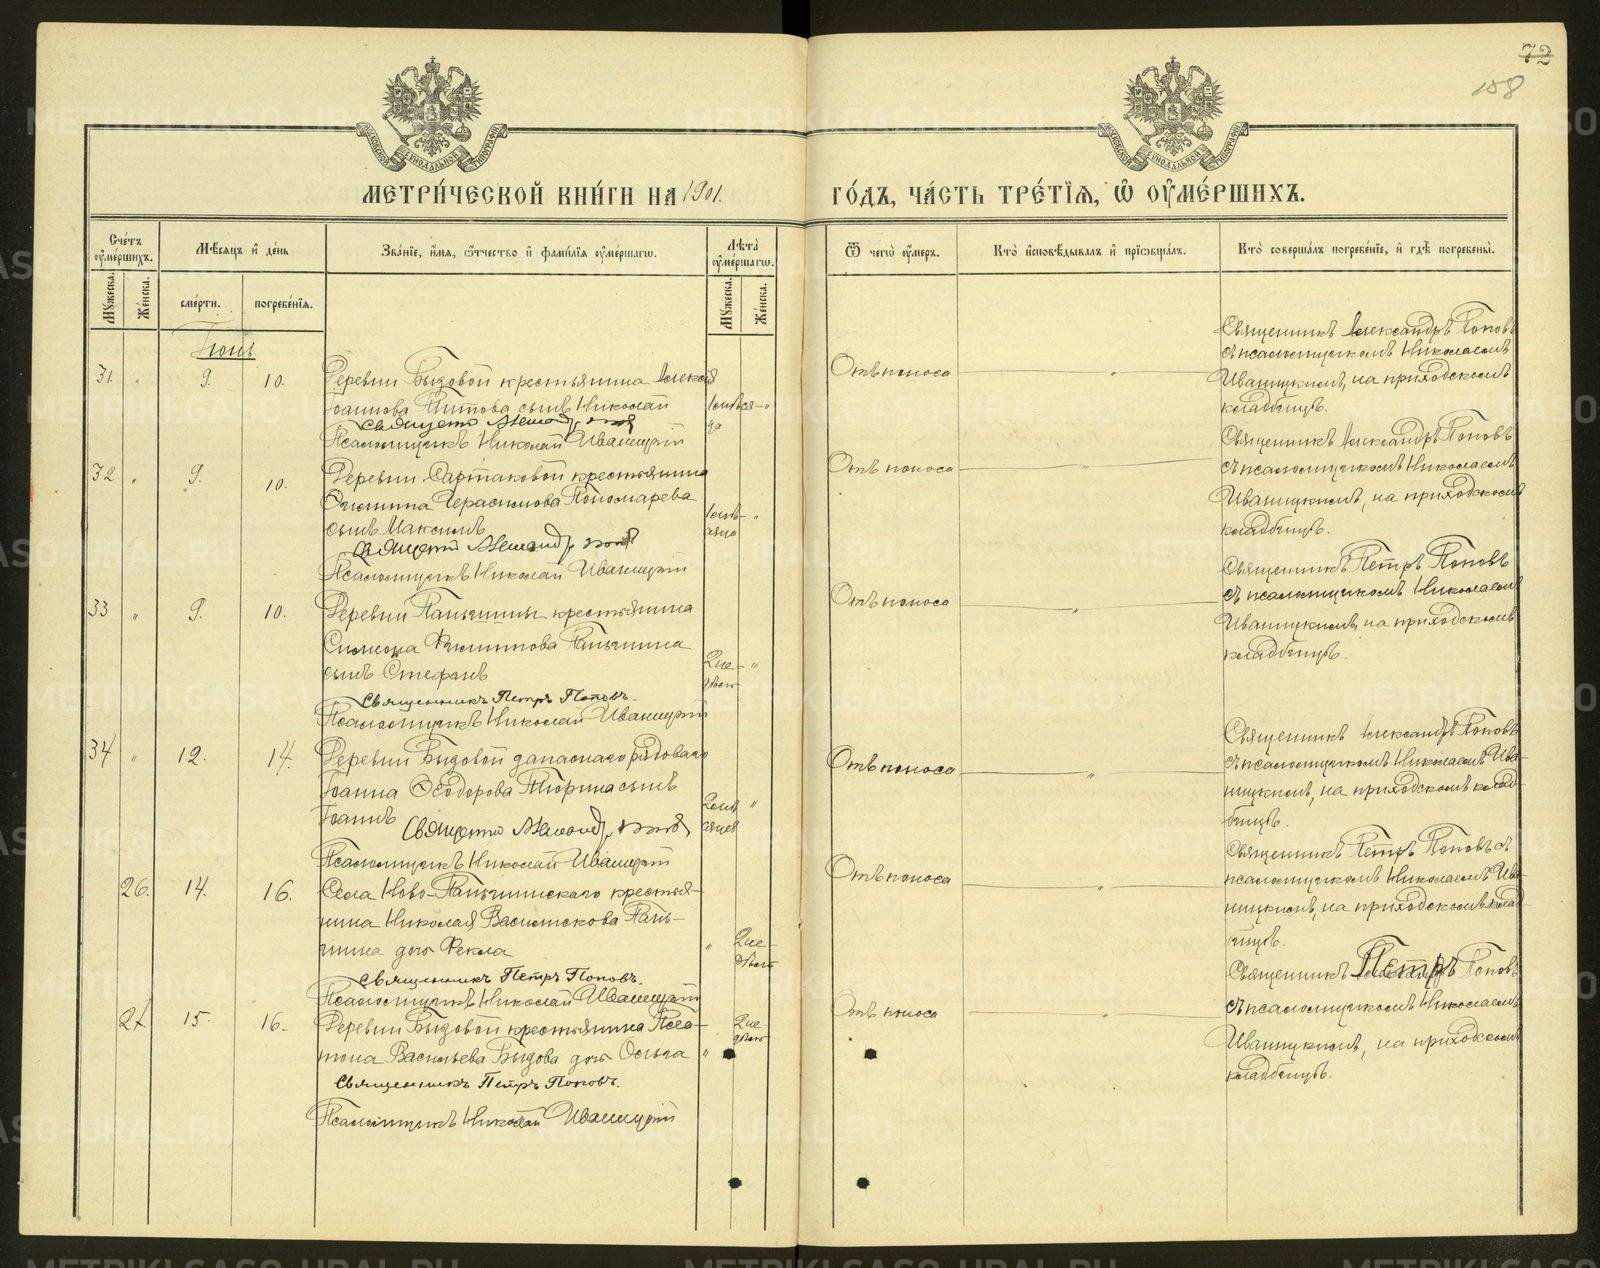 72
158
МЕТРИ́ЧЕСКОЙ КНИ́ГИ НА 1901. ГО́ДЪ, ЧА́СТЬ ТРЕ́ТІѦ, Ѡ ОУМЕ́РШИХЪ.
Сче́тъ оумершихъ.
Мѣсяцъ и день
Званіе, имя, отчество и фамилія оумершагѡ.
Лѣта оумершагѡ.
Ѿ чегѡ оумеръ.
Кто исповѣдывалъ и пріобщалъ.
Кто совершалъ погребеніе, и гдѣ погребены.
Мужеска.
Женска.
смерти.
погребенія.
Мужеска.
Женска.
Іюнь
31. " 9. 10.
Деревни Быдовой крестьянина Алексія
Іоаннова Титова сынъ Николай
Священникъ Александръ Поповъ
Псаломщикъ Николай Иваницкій
Отъ поноса
Священникъ Александръ Поповъ
съ псаломщикомъ Николаемъ
Иваницкимъ, на приходскомъ
кладбищѣ.
32 " 9. 10.
Деревни Сартаковой крестьянина
Герасимова Пономарева
сынъ Максимъ
Священникъ Александръ Поповъ
Псаломщикъ Николай Иваницкій
Отъ поноса
Священникъ Александръ Поповъ
съ псаломщикомъ Николаемъ
Иваницкимъ, на приходскомъ
кладбищѣ.
33 " 9. 10.
Деревни Паньшины крестьянина
Симеона Филиппова Паньшина
сынъ Стефанъ
2 не-
дѣль
Священникъ Петръ Поповъ.
Псаломщикъ Николай Иваницкій
Отъ поноса
Священникъ Петръ Поповъ
съ псаломщикомъ Николаемъ
Иваницкимъ, на приходскомъ
кладбищѣ.
34 " 12. 14.
Деревни Быдовой запаснаго рядоваго
Іоанна Ѳеодорова Тюрина сынъ
Іоаннъ
Священникъ Александръ Поповъ
Псаломщикъ Николай Иваницкій
Отъ поноса
Священникъ Александръ Поповъ
съ псаломщикомъ Николаемъ Ива-
ницкимъ, на приходскомъ клад-
бищѣ.
26. 14. 16.
Села Ново-Паньшинскаго крестья-
нина Николая Василискова Пань-
шина дочь Фекла
2 не-
дѣль
Священникъ Петръ Поповъ.
Псаломщикъ Николай Иваницкій
Отъ поноса
Священникъ Петръ Поповъ съ
псаломщикомъ Николаемъ Ива-
ницкимъ, на приходскомъ клад-
бищѣ.
27. 15. 16.
Деревни Быдовой крестьянина Пла-
тона Васильева Быдова дочь Ольга
2 не
дѣль
Священникъ Петръ Поповъ.
Псаломщикъ Николай Иваницкій
Отъ поноса
Священникъ Петръ Поповъ
съ псаломщикомъ Николаемъ
Иваницкимъ, на приходскомъ
кладбищѣ.
METRIKI.GASO-URAL.RU